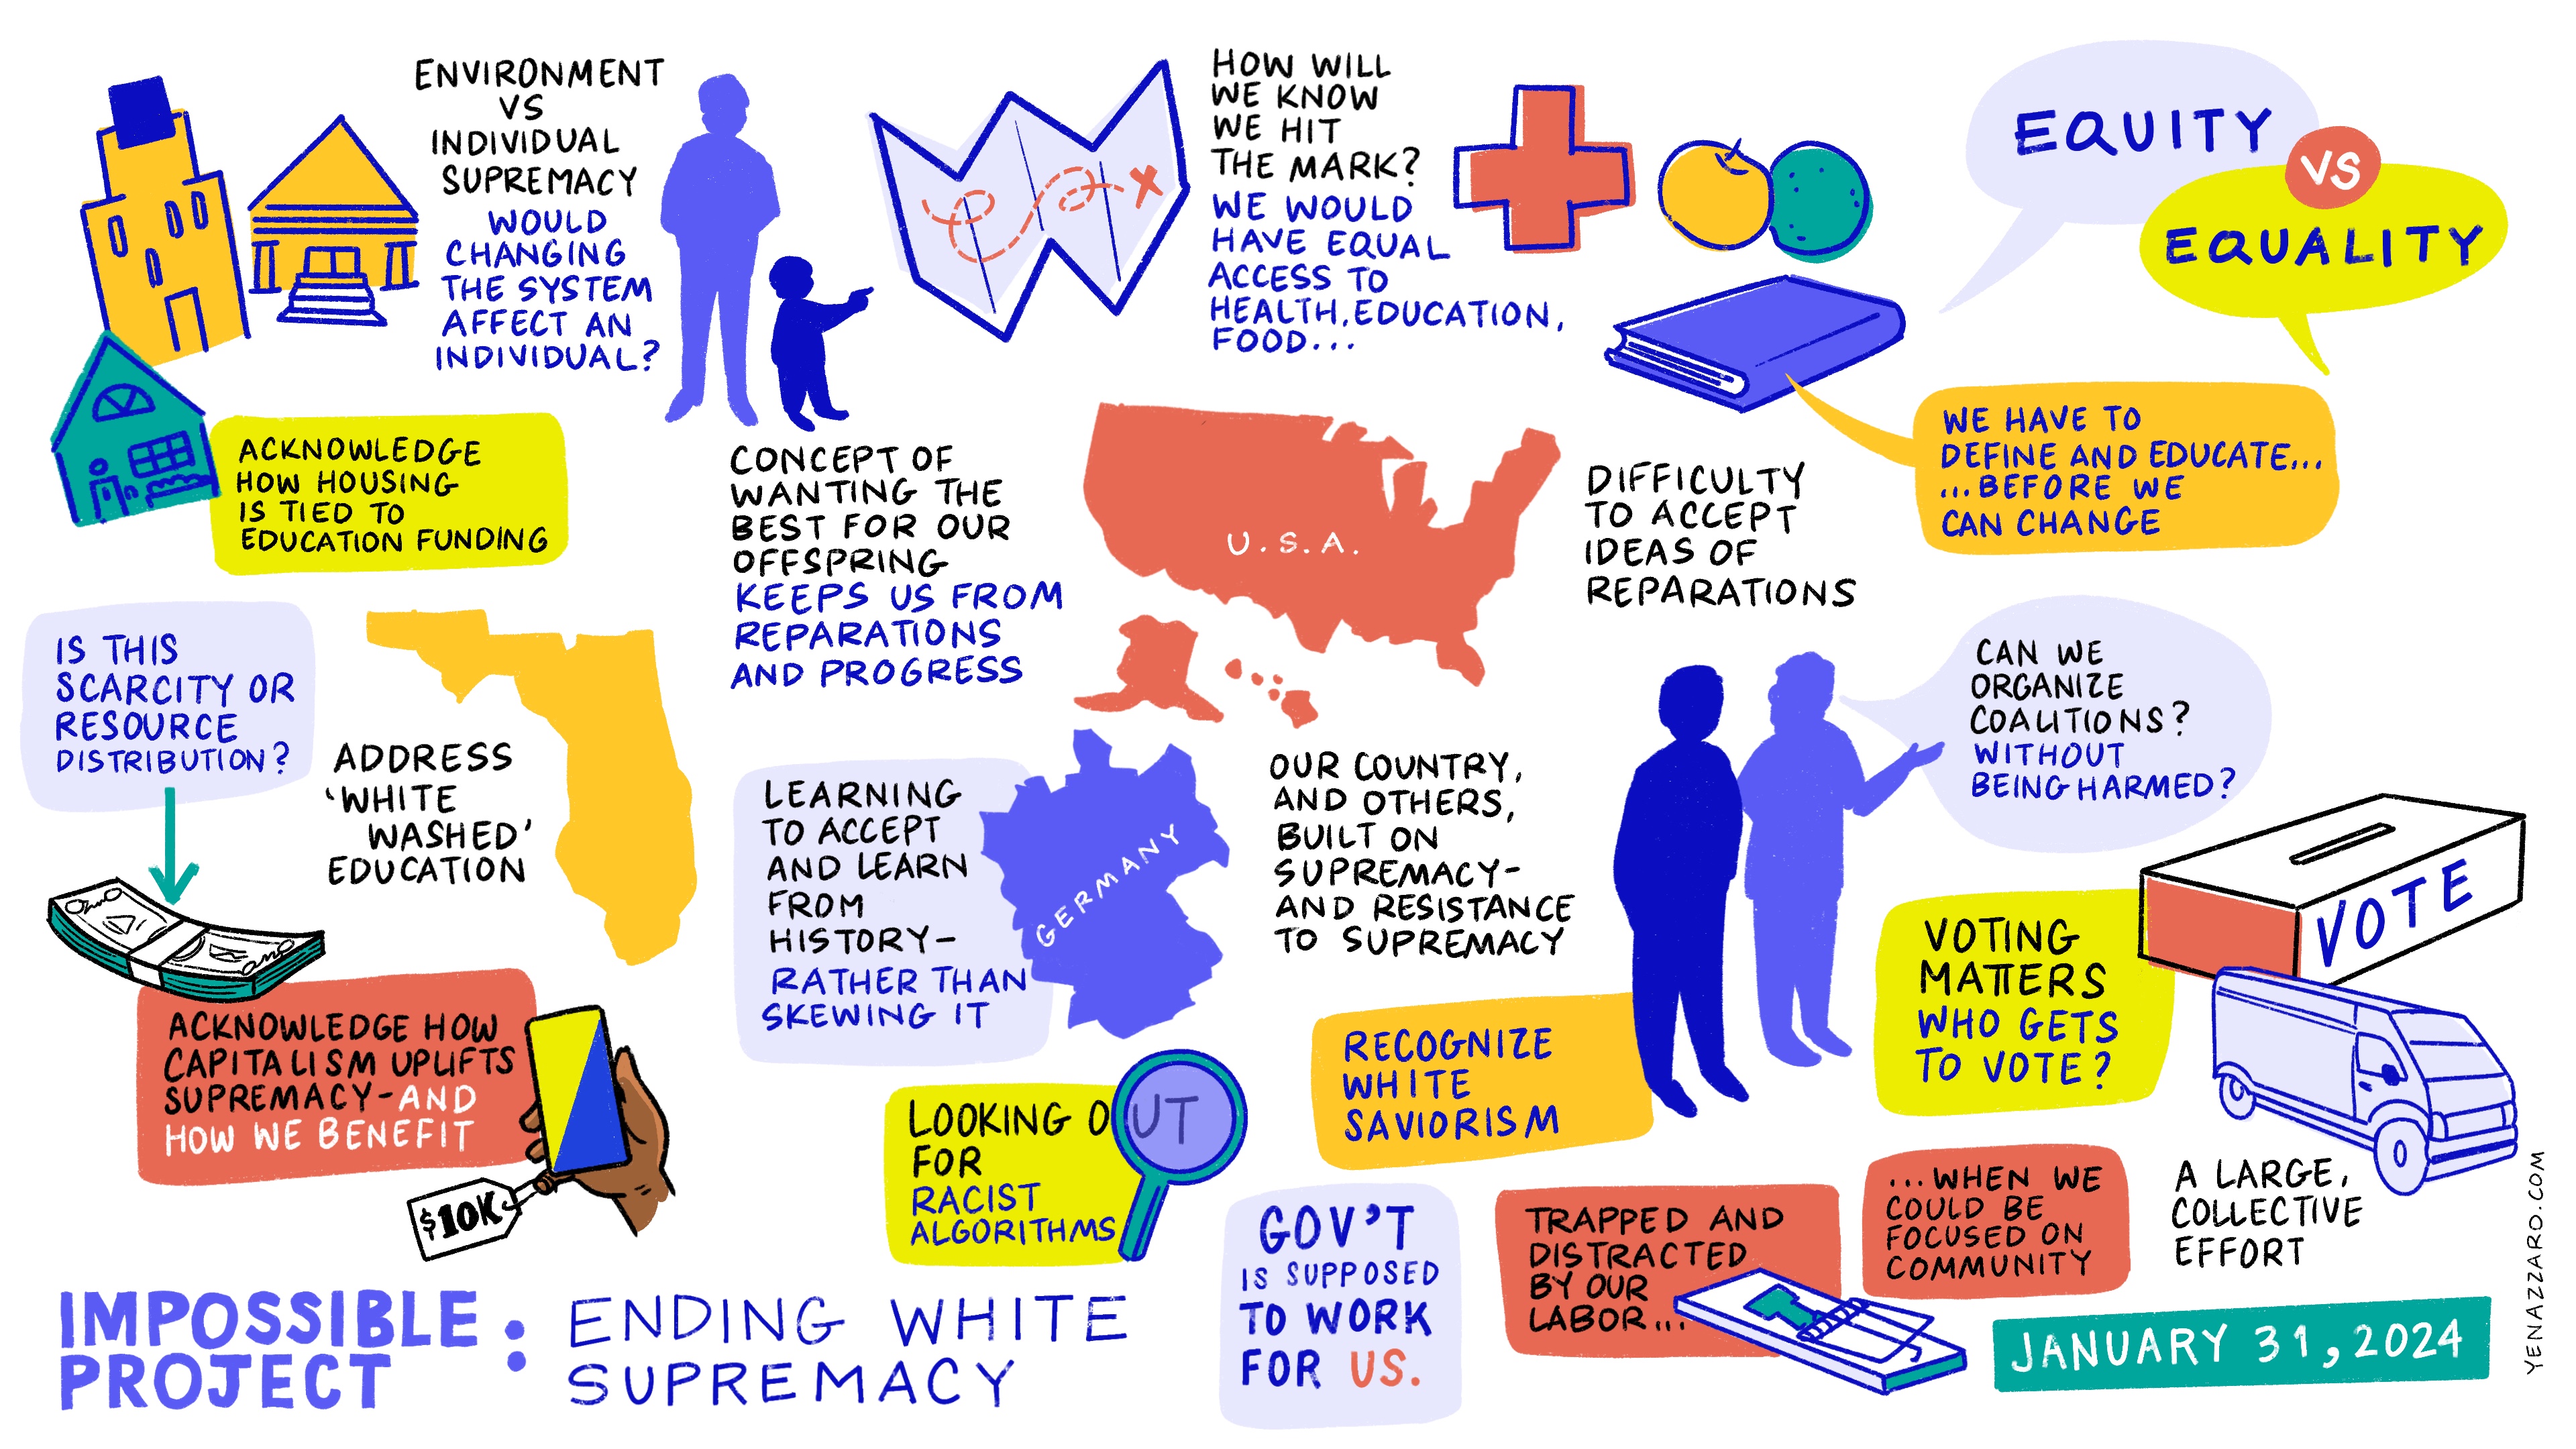 ENVIRONMENT
VS
INDIVIDUAL
SUPREMACY
WOULD
CHANGING
THE SYSTEM
AFFECT AN
INDIVIDUAL?
HOW WILL
WE KNOW
WE HIT
THE MARK?
WE WOULD
HAVE EQUAL
ACCESS TO
HEALTH, EDUCATION,
FOOD...
EQUITY
VS
EQUALITY
ACKNOWLEDGE
HOW HOUSING
IS TIED TO
EDUCATION FUNDING
CONCEPT OF
WANTING THE
BEST FOR OUR
OFFSPRING
KEEPS US FROM
REPARATIONS
AND PROGRESS
U.S.A.
DIFFICULTY
TO ACCEPT
IDEAS OF
REPARATIONS
WE HAVE TO
DEFINE AND EDUCATE...
...BEFORE WE
CAN CHANGE
IS THIS
SCARCITY OR
RESOURCE
DISTRIBUTION?
ADDRESS
'WHITE
WASHED'
EDUCATION
LEARNING
TO ACCEPT
AND LEARN
FROM
HISTORY-
RATHER THAN
SKEWING IT
GERMANY
OUR COUNTRY,
AND OTHERS,
BUILT ON
SUPREMACY-
AND RESISTANCE
TO SUPREMACY
CAN WE
ORGANIZE
COALITIONS?
WITHOUT
BEING HARMED?
VOTE
VOTING
MATTERS
WHO GETS
TO VOTE?
ACKNOWLEDGE HOW
CAPITALISM UPLIFTS
SUPREMACY-AND
HOW WE BENEFIT
$10K
LOOKING OUT
FOR
RACIST
ALGORITHMS
RECOGNIZE
WHITE
SAVIORISM
GOV'T
IS SUPPOSED
TO WORK
FOR US.
TRAPPED AND
DISTRACTED
BY OUR
LABOR...
...WHEN WE
COULD BE
FOCUSED ON
COMMUNITY
A LARGE,
COLLECTIVE
EFFORT
IMPOSSIBLE
PROJECT
:
ENDING WHITE
SUPREMACY
JANUARY 31, 2024
YENAZZARO.COM